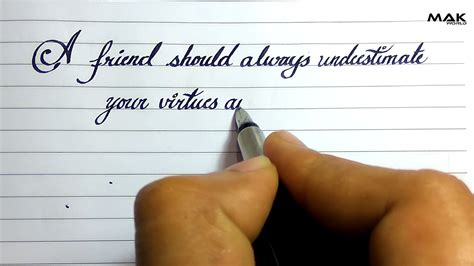 MAK
WORLD
A friend should always underestimate
your virtues a